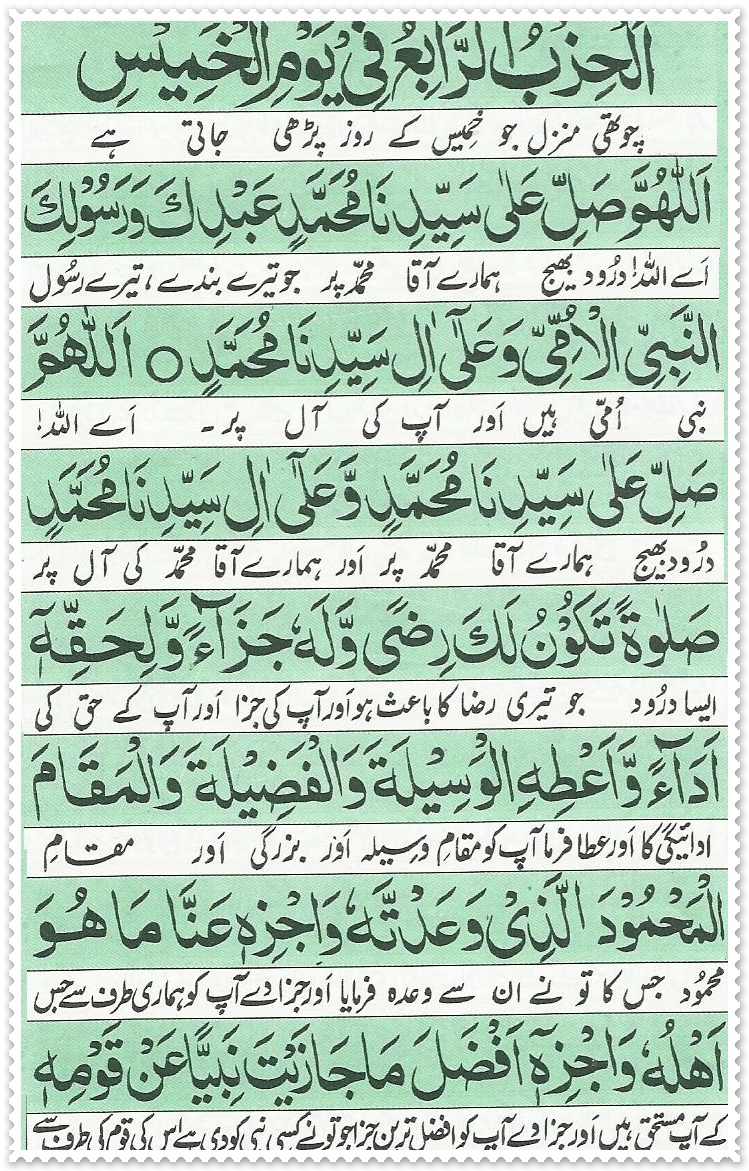 اَلْحِزْبُ الرَّابِعُ فِیْ یَوْمِ الْخَمِیْسِ
چوتھی منزل جو خمیس کے روز پڑھی جاتی ہے
اَللّٰهُمَّ صَلِّ عَلٰی سَیِّدِنَا مُحَمَّدٍ عَبْدِكَ وَرَسُوْلِكَ
اَے اللہ! درُود بھیج ہمارے آقا محمّد پر جو تیرے بندے ، تیرے رسُول
النَّبِیِّ الْاُمِّیِّ وَعَلٰۤی اٰلِ سَیِّدِنَا مُحَمَّدٍ ○ اَللّٰهُمَّ
نبی اُمّی ہیں اَور آپ کی آل پر۔ اَے اللہ!
صَلِّ عَلٰی سَیِّدِنَا مُحَمَّدٍ وَّعَلٰۤی اٰلِ سَیِّدِنَا مُحَمَّدٍ
درُود بھیج ہمارے آقا محمّد پر اَور ہمارے آقا محمّد کی آل پر
صَلٰوةً تَكُوْنُ لَكَ رِضًی وَّلَهٗ جَزَآءً وَّلِحَقِّهٖۤ
ایسا درُود جو تیری رضا کا باعث ہو اَور آپ کی جزا اَور آپ کے حق کی
اَدَآءً وَّاَعْطِهِ الْوَسِیْلَةَ وَالْفَضِیْلَةَ وَالْمَقَامَ
ادائیگی کا اَور عطا فرما آپ کو مقامِ وسِیلہ اَور بزرگی اَور مقامِ
الْمَحْمُوْدَ الَّذِیْ وَعَدْتَّهٗ وَاجْزِهٖ عَنَّا مَا هُوَ
محمُود جس کا تو نے ان سے وعدہ فرمایا اَور جزا دے آپ کو ہماری طرف سے جس
اَهْلُهٗ وَاجْزِهٖۤ اَفْضَلَ مَا جَازَیْتَ نَبِیًّا عَنْ قَوْمِهٖ
کے آپ مستحق ہیں اَور جزا دے آپ کو افضل ترین جزا جو تو نے کسی نبی کو دی ہے اس کی قوم کی طرف سے